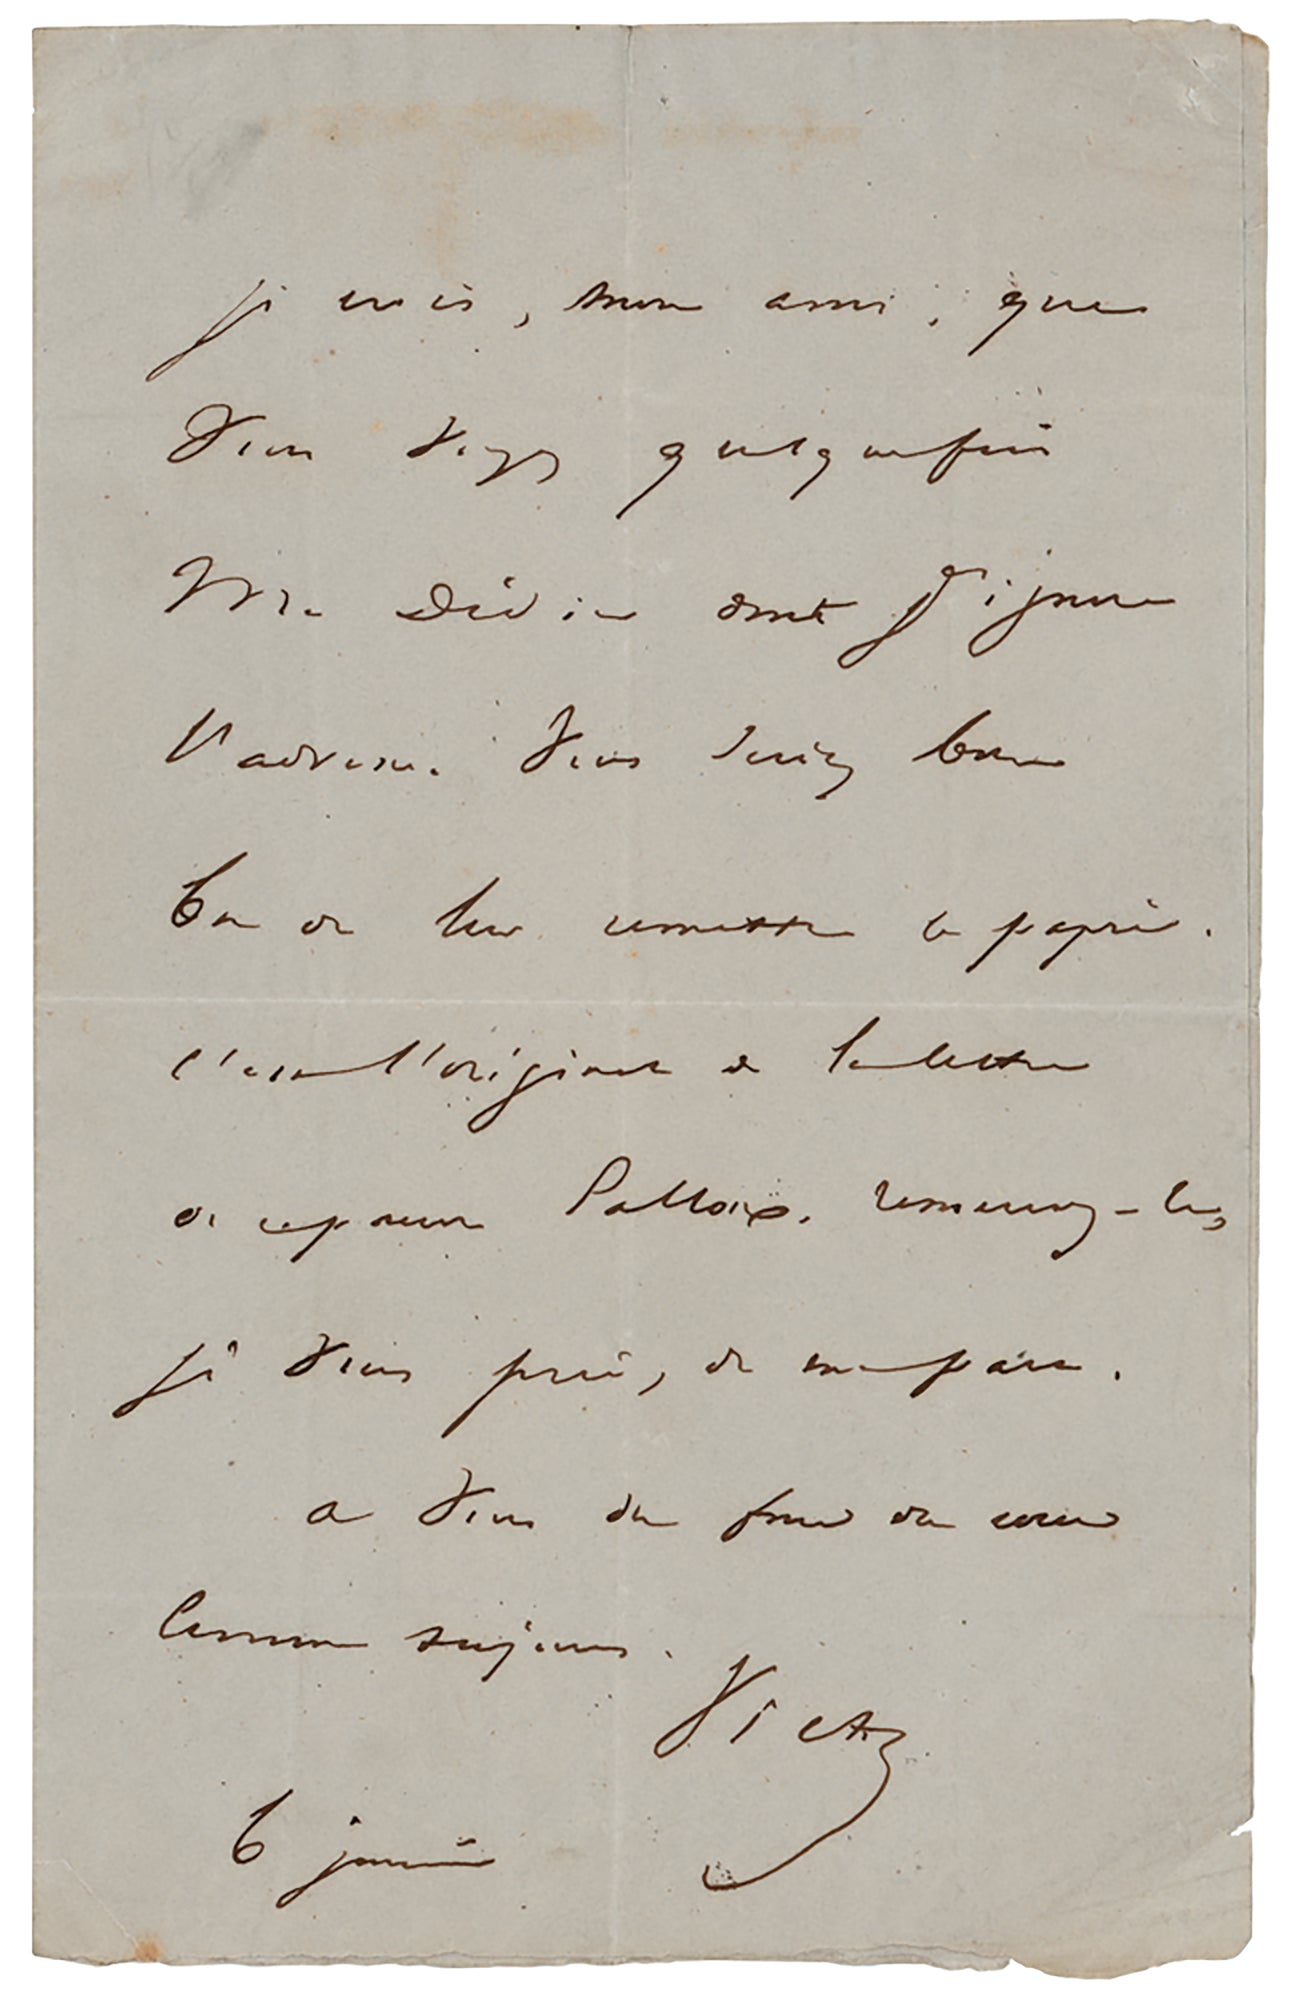 je crois, mon ami, que
vous voyez quelquefois
Mr Didier dont j'ignore
l'adresse. Vous seriez bien
bon de leur remettre ce papier.
c'est l'original de la lettre
de ce pauvre Pallois. remerciez-les,
je vous prie, de ma part.
a vous du fond du cœur
comme toujours.
Victor
6 janvier